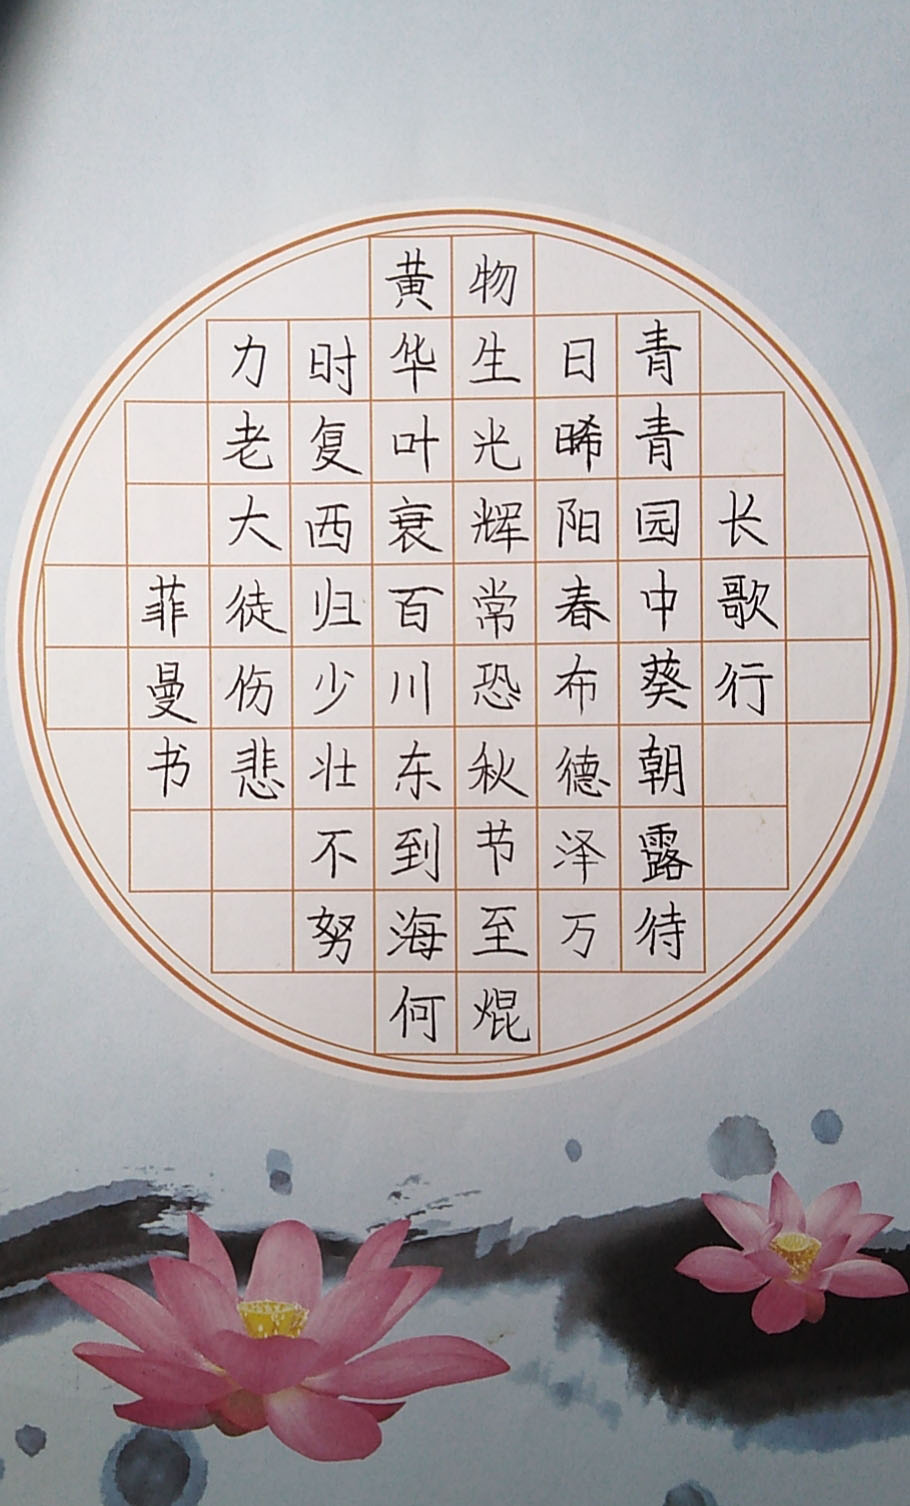 长歌行
青青园中葵朝露待
日晞阳春布德泽万
物生光辉常恐秋节至焜
黄华叶衰百川东到海何
时复西归少壮不努
力老大徒伤悲
菲曼书